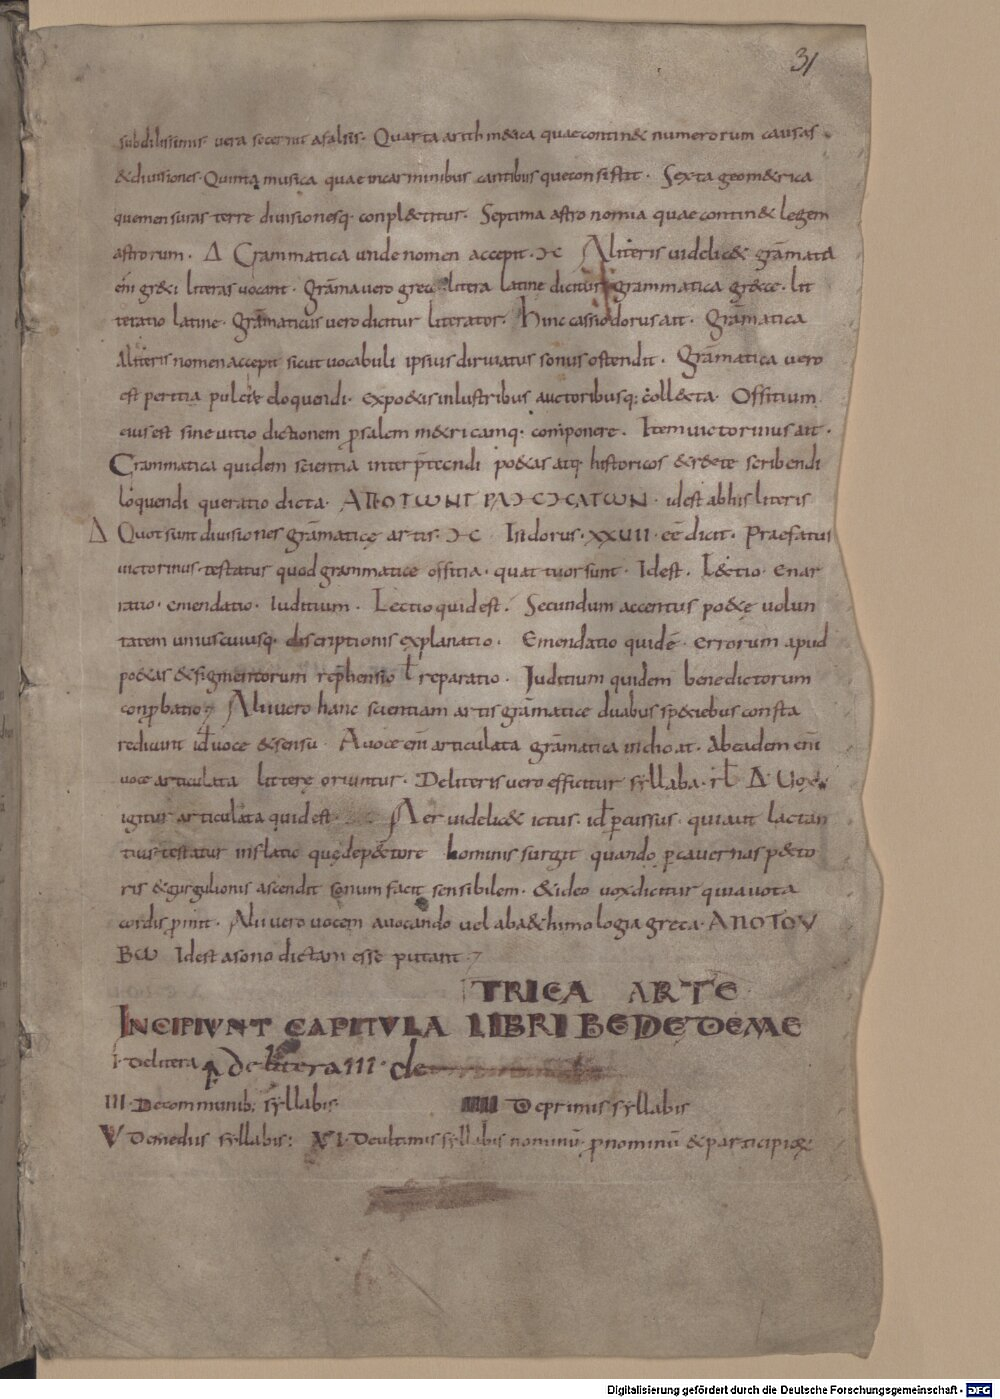 31
subdilissimis vera secernit afalsis. Quarta arithm&ica quae contin& numerorum causas.
& divisiones. Quinta musica quae in carminibus cantibusque consistit. Sexta geom&rica
que mensuras terre divisionesq. conpl&titur. Septima astronomia quae contin& legem
astrorum. Δ Grammatica unde nomen accepit. Ↄ-C Aliteris videlic& grāmata
enī gr&ci literas vocant. grāma vero grece litera latine dicitur grammatica gręce. lit
teratio latine. grāmaticus vero dicitur literator. Hinc cassiodorus ait. Grāmatica
aliteris nomen accepit sicut vocabuli ipsius dirivatus sonus ostendit. Grāmatica vero
est peritia pulcre eloquendi. expo&is inlustribus auctoribusq; coll&cta. Offitium
eius est sine vitio dictionem prosalem m&ricamq. componere. Item victorinus ait.
Grammatica quidem scientia interpr̄tendi po&as atq; historicos & r&cte scribendi
loquendi queratio dicta. ΑΠΟΤѠΝΓΡΑϽ-CϽ-CΑΤѠΝ. id est abhis literis
Δ Quot sunt divisiones grāmaticę artis. Ↄ-C Isidorus. XXVIII. eē dicit. Praefatus
victorinus. testatur quod grammatice offitia. quattuor sunt. Id est. L&ctio. enar
ratio. emendatio. Iuditium. Lectio quid est. Secundum accentus po&ę volun
tatem uniuscuiusq. discriptionis explanatio. Emendatio quidē. errorum apud
po&as & figmentorum rep̄hensio ł reparatio. Juditium quidem benedictorum
conp̱batio; Alii vero hanc scientiam artis grāmatice duabus sp&ciebus consta
re dicunt id voce & sensu. Avoce enī articulata grāmatica inchoat. Abeadem enī
voce articulata litterę oriuntur. De literis vero efficitur syllaba. rl Δ Vox
igitur articulata quid est. Aer videlic& ictus. id p̱cussus. quia ut lactan
tius testatur inflatio quę dep&ctore hominis surgit quando p̱cavernas p&cto
ris & gurgulionis ascendit sonum facit sensibilem. & ideo vox dicitur quia vota
cordis p̱mit. Alii vero vocem avocando vel aba&himologia greca. ΑΠΟΤΟΥ
ΒѠ Id est asono dictam esse putant;
TRICA ARTE
INCIPIUNT CAPITULA LIBRI BEDĘ DE ME
I. De litera De litera III. de
III. De communib; syllabis IIII De primis syllabis
V De mediis syllabis: VI. De ultimis syllabis nominū pronominū & participioꝝ
Digitalisierung gefördert durch die Deutsche Forschungsgemeinschaft - DFG